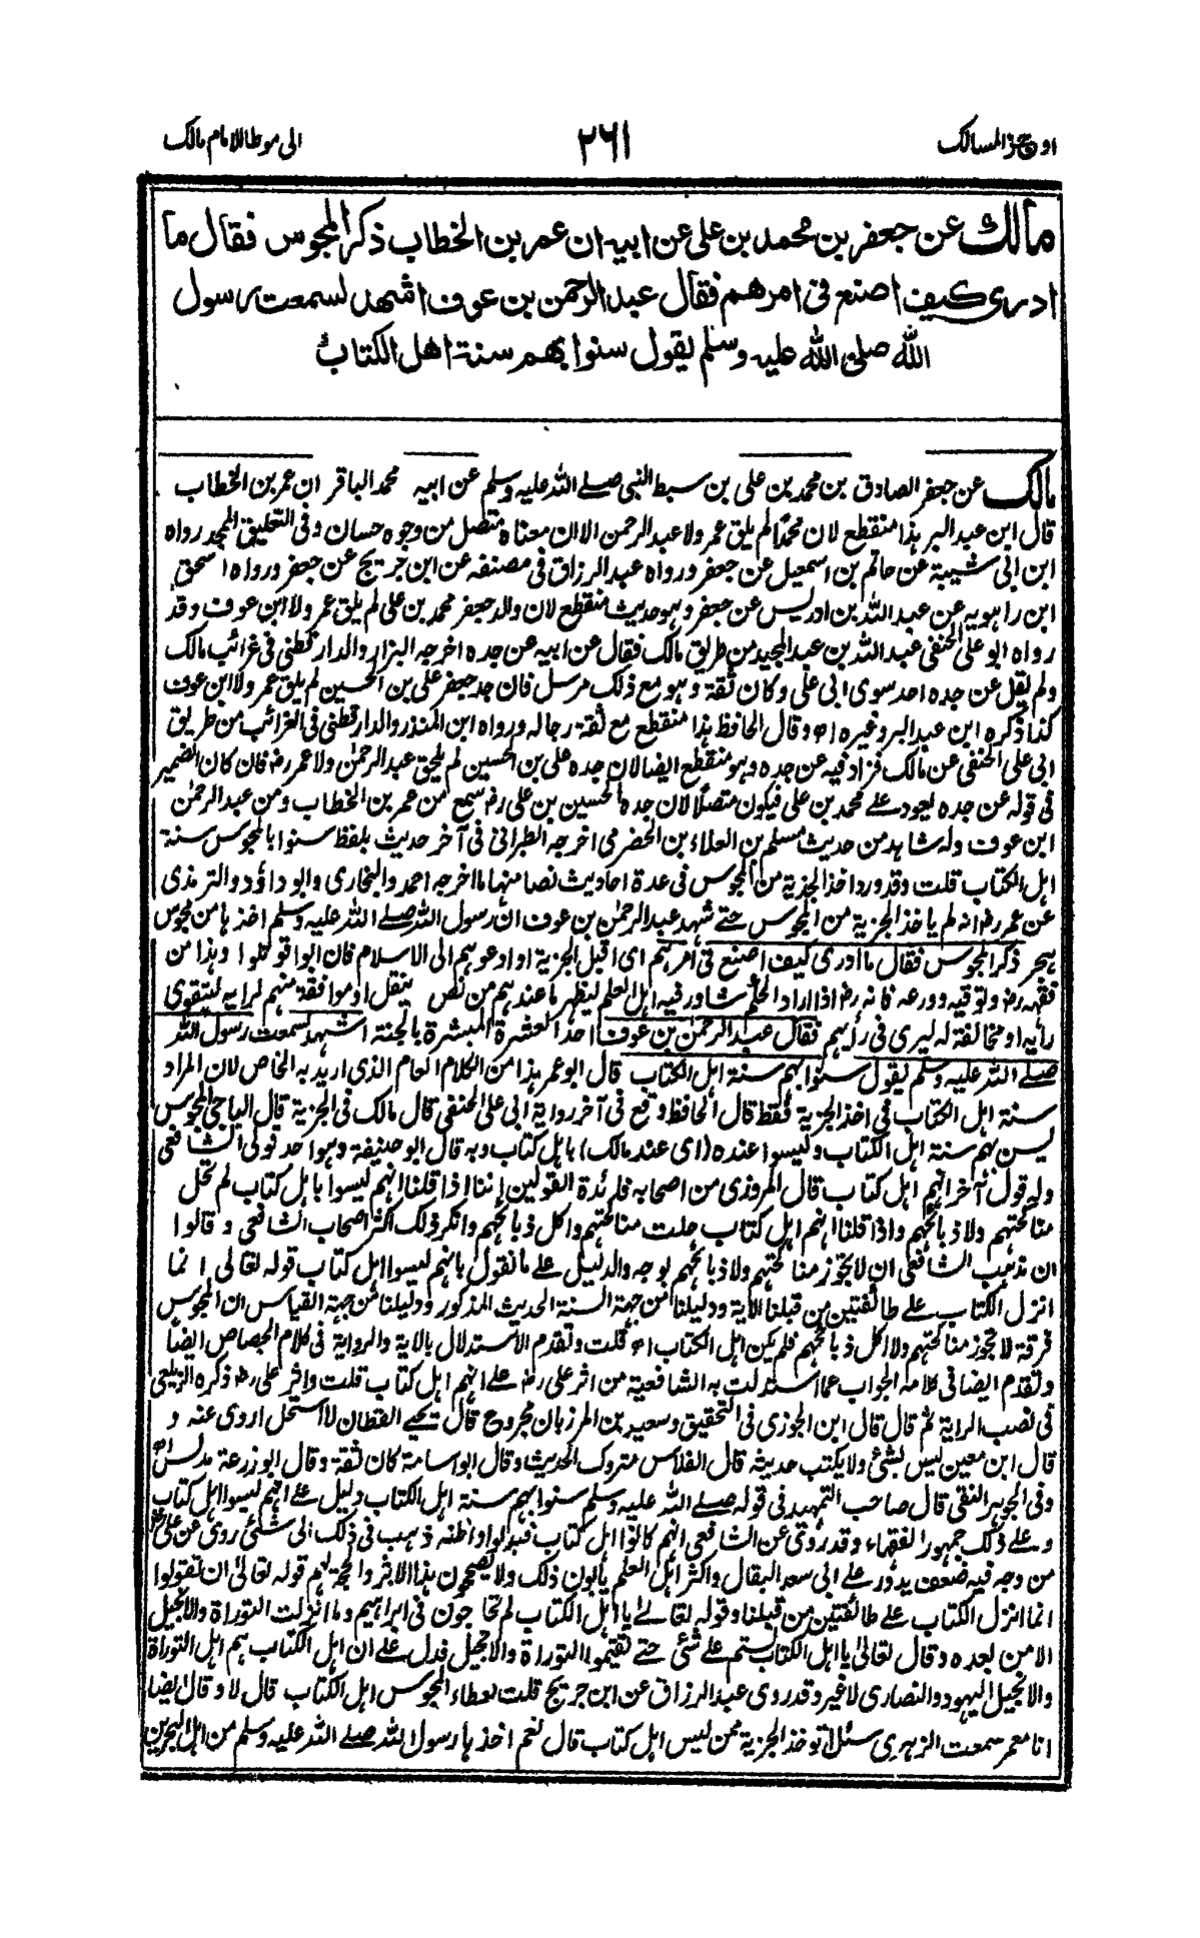 اوجز المسالك
٢٦١
الى موطا الامام مالك
مالك عن جعفر بن محمد بن على عن ابيه ان عمر بن الخطاب ذكر المجوس فقال ما
ادرى كيف اصنع فى امرهم فقال عبد الرحمن بن عوف اشهد لسمعت رسول
الله صلى الله عليه وسلم يقول سنوا بهم سنة اهل الكتاب
مالك عن جعفر الصادق بن محمد بن على بن سبط النبى صلے الله عليه وسلم عن ابيه محمد الباقر ان عمر بن الخطاب
قال ابن عبد البر هذا منقطع لان محمدا لم يلق عمر ولا عبد الرحمن الا ان معناه متصل من وجوه حسان وفى التعليق الممجد رواه
ابن ابى شيبة عن حاتم بن اسمعيل عن جعفر ورواه عبد الرزاق فى مصنفه عن ابن جريج عن جعفر ورواه اسحق
ابن راهويه عن عبد الله بن ادريس عن جعفر وهو حديث منقطع لان والد جعفر محمد بن على لم يلق عمر ولا ابن عوف وقد
رواه ابو على الحنفى عبد الله بن عبد المجيد من طريق مالك فقال عن ابيه عن جده اخرجه البزار والدارقطنى فى غرائب مالك
ولم يقل عن جده احد سوى ابى على وكان ثقة وهو مع ذلك مرسل فان جد جعفر على بن الحسين لم يلق عمر ولا ابن عوف
كذا ذكره ابن عبد البر وغيره اه وقال الحافظ هذا منقطع مع ثقة رجاله ورواه ابن المنذر والدارقطنى فى الغرائب من طريق
ابى على الحنفى عن مالك فزاد فيه عن جده وهو منقطع ايضا لان جده على بن الحسين لم يلحق عبد الرحمن ولا عمر رض فان كان الضمير
فى قوله عن جده يعود علے محمد بن على فيكون متصلا لان جده الحسين بن على رض سمع من عمر بن الخطاب ومن عبد الرحمن
ابن عوف وله شاهد من حديث مسلم بن العلاء بن الحضرمى اخرجه الطبرانى فى آخر حديث بلفظ سنوا بالمجوس سنة
اهل الكتاب قلت وقد ورد اخذ الجزية من المجوس فى عدة احاديث نصا منها ما اخرجه احمد والبخارى وابو داؤد والترمذى
عن عمر رض انه لم ياخذ الجزية من المجوس حتے شهد عبد الرحمن بن عوف ان رسول الله صلے الله عليه وسلم اخذها من مجوس
هجر ذكر المجوس فقال ما ادرى كيف اصنع فى امرهم اى اقبل الجزية او ادعوهم الى الاسلام فان ابوا قوتلوا وهذا من
فقهه رض وتوقيه وورعه فانه رض اذا اراد الحكم شاور فيه اهل العلم ليظهر ما عندهم من نص ينقل او موافقة منهم لرايه ليتقوى
رايه او مخالفة له ليرى فى رأيهم فقال عبد الرحمن بن عوف احد العشرة المبشرة بالجنة اشهد لسمعت رسول الله
صلے الله عليه وسلم يقول سنوا بهم سنة اهل الكتاب قال ابو عمر هذا من الكلام العام الذى اريد به الخاص لان المراد
سنة اهل الكتاب فى اخذ الجزية فقط قال الحافظ وقع فى آخر رواية ابى على الحنفى قال مالك فى الجزية قال الباجى المجوس
ليس بهم سنة اهل الكتاب وليسوا عنده (اى عند مالك) باهل كتاب وبه قال ابو حنيفة وهو احد قولى الشافعى
وله قول آخر انهم اهل كتاب قال المروذى من اصحابه فائدة القولين اننا اذا قلنا انهم ليسوا باهل كتاب لم تحل
مناكحتهم ولا ذبائحهم واذا قلنا انهم اهل كتاب حلت مناكحتهم واكل ذبائحهم وانكر ذلك اكثر اصحاب الشافعى وقالوا
ان مذهب الشافعى ان لا يجوز مناكحتهم ولا ذبائحهم بوجه والدليل علے ما نقول بانهم ليسوا اهل كتاب قوله تعالى انما
انزل الكتاب علے طائفتين من قبلنا الاية ودليلنا من جهة السنة الحديث المذكور ودليلنا من جهة القياس ان المجوس
فرقة لا تجوز مناكحتهم ولا اكل ذبائحهم فلم يكن اهل الكتاب اه قلت وتقدم الاستدلال بالاية والرواية فى كلام الجصاص ايضا
وتقدم ايضا فى كلامه الجواب عما استدلت به الشافعية من اثر على رض علے انهم اهل كتاب قلت واثر على رض ذكره الزيلعى
فى نصب الراية ثم قال قال ابن الجوزى فى التحقيق وسعيد بن المرزبان مجروح قال يحيے القطان لا استحل اروى عنه و
قال ابن معين ليس بشئ ولا يكتب حديثه قال الفلاس متروك الحديث وقال ابو اسامة كان ثقة وقال ابو زرعة مدلس اه
وفى الجوهر النقى قال صاحب التمهيد فى قوله صلے الله عليه وسلم سنوا بهم سنة اهل الكتاب دليل علے انهم ليسوا اهل كتاب
وعلے ذلك جمهور الفقهاء وقد روى عن الشافعى انهم كانوا اهل كتاب فبدلوا واظنه ذهب فى ذلك الى شئ روى عن على رض
من وجه فيه ضعف يدور علے ابى سعد البقال واكثر اهل العلم يابون ذلك ولا يصححون هذا الاثر والحجة لهم قوله تعالى ان تقولوا
انما انزل الكتاب علے طائفتين من قبلنا وقوله تعالے يا اهل الكتاب لم تحاجون فى ابراهيم وما انزلت التوراة والانجيل
الا من بعده وقال تعالى يا اهل الكتاب لستم علے شئ حتے تقيموا التوراة والانجيل فدل علے ان اهل الكتاب هم اهل التوراة
والانجيل اليهود والنصارى لا غير وقد روى عبد الرزاق عن ابن جريج قلت لعطاء المجوس اهل الكتاب قال لا وقال ايضا
انا معمر سمعت الزهرى سئل اتوخذ الجزية ممن ليس اهل كتاب قال نعم اخذها رسول الله صلے الله عليه وسلم من اهل البحرين